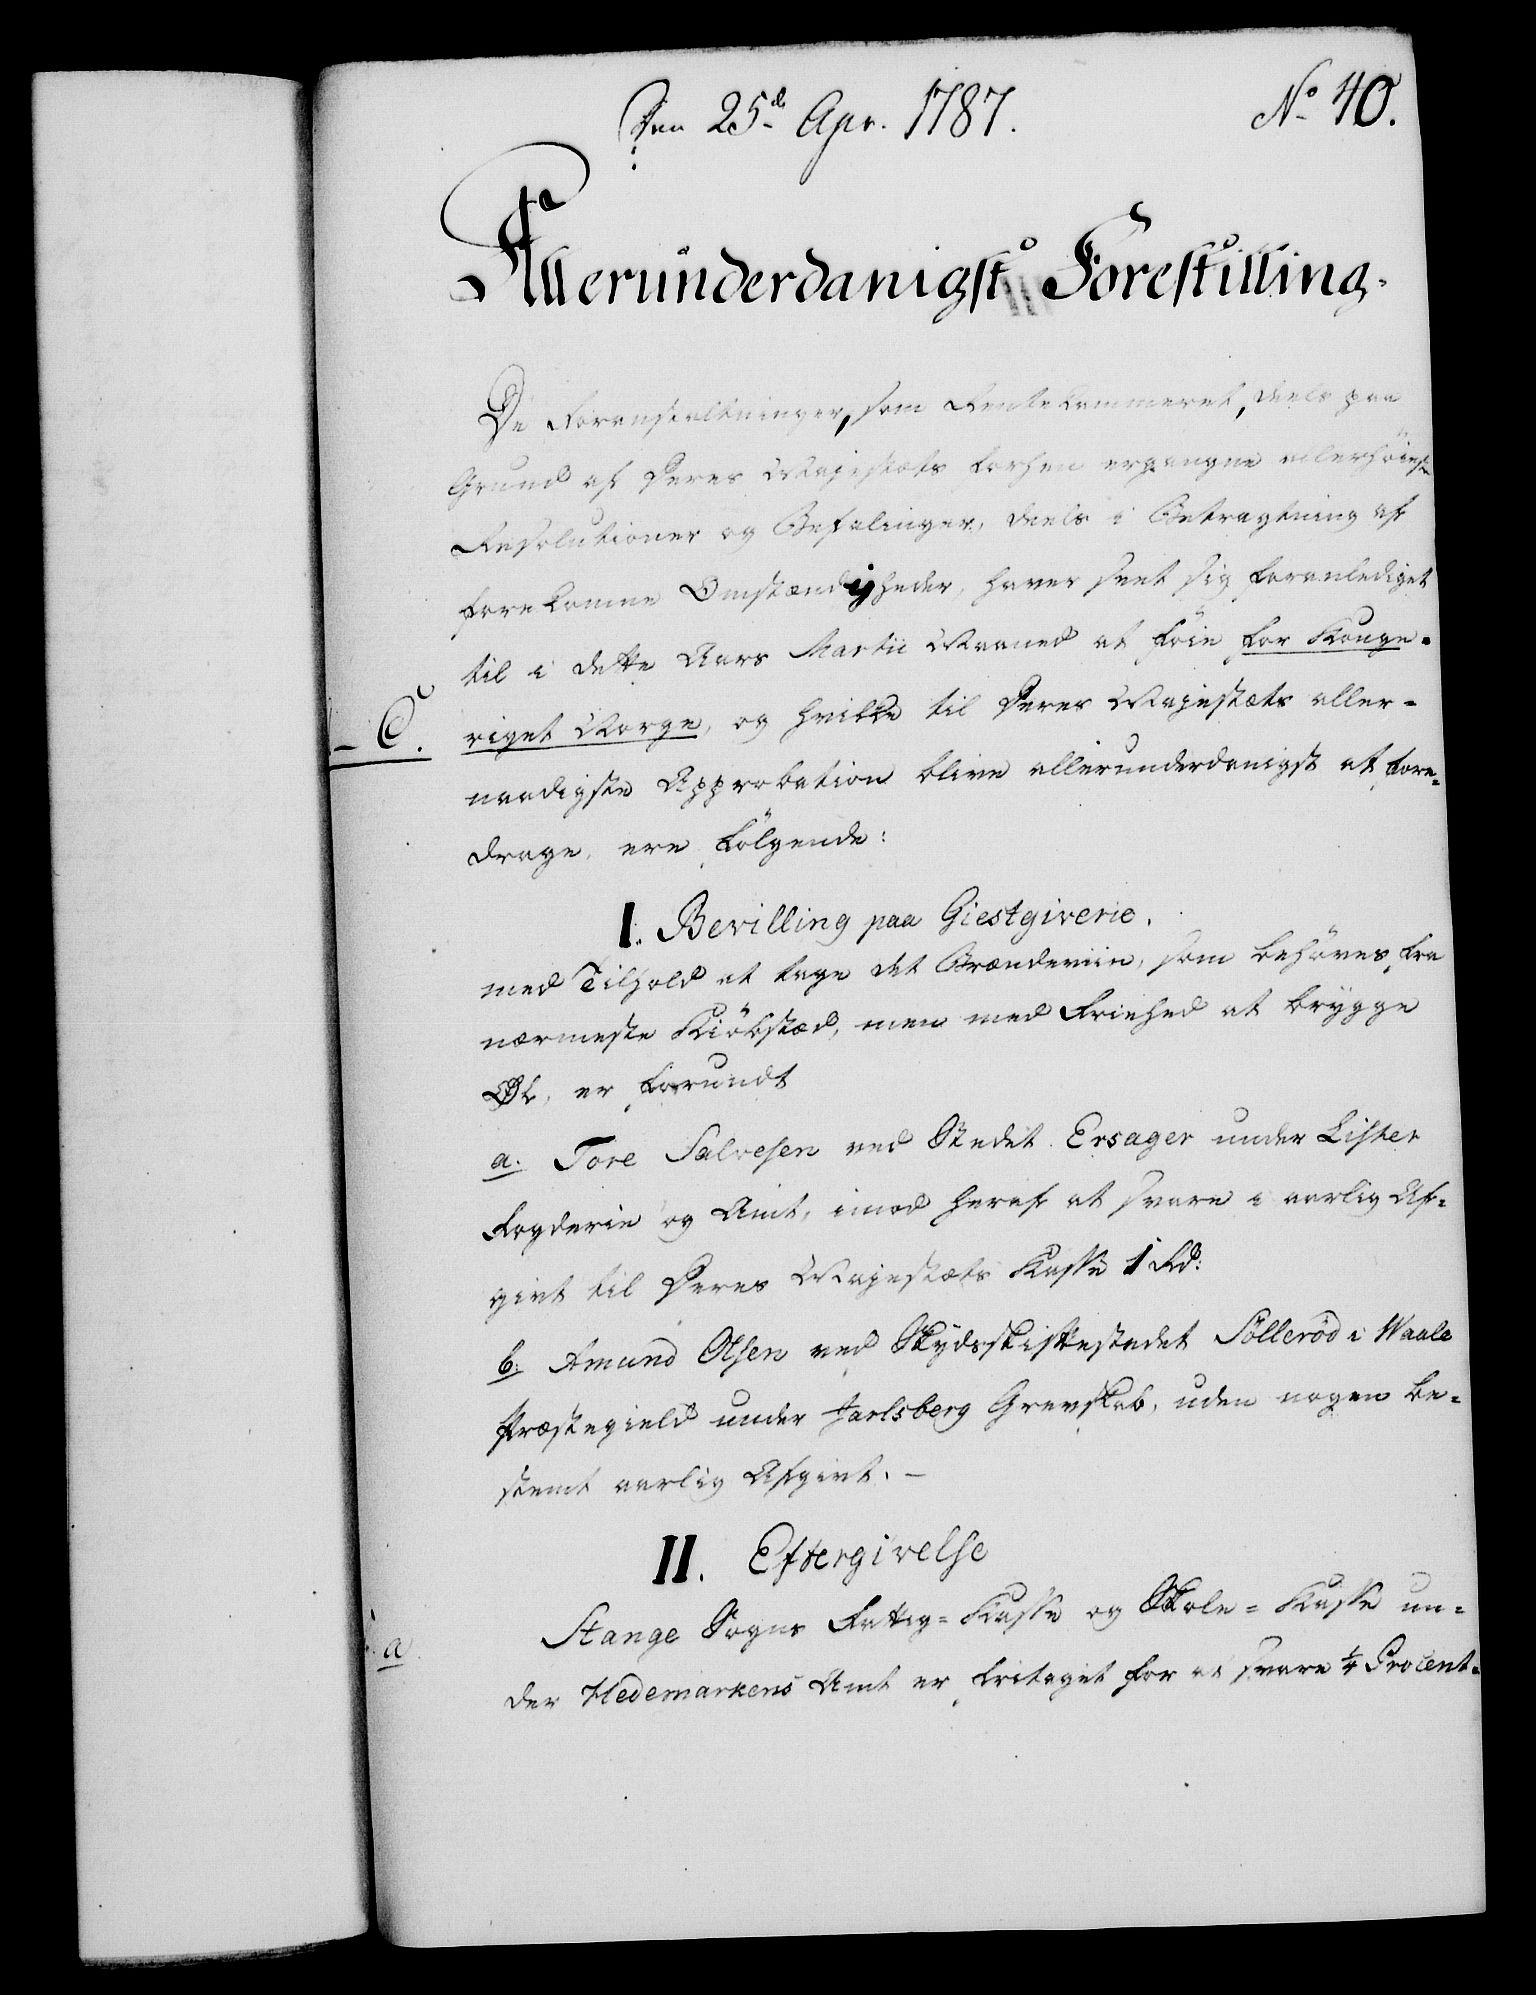 Den 25de Apr. 1787. No 40.
Allerunderdanigst Forestilling.
De Foranstaltninger, som Rentekammeret, deels paa
Grund af Deres Majestæts forhen ergangne allerhöieste
Resolutioner og Befalinger, deels i Betragtning af
forekomne Omstændigheder, haver seet sig foranlediget
til i dette Aars Martii Maaned at föie for Konge-
riget Norge, og hvilke til Deres Majestæts aller-
naadigste Approbation blive allerunderdanigst at fore-
drage, ere fölgende:
I. Bevilling paa Giestgiverie.
med Tilhold at tage det Brændeviin, som behöves, fra
nærmeste Kiöbstæd, men med Friehed at brygge
Øl, er forundt
a. Tore Salvesen ved Stedet Ersager under Lister
Fogderie og Amt, imod heraf at svare i aarlig Af-
givt til Deres Majestæts Kasse 1 Rd:
b. Amund Olsen ved Skydsskiftestedet Sölleröd i Waale
Præstegield under Jarlsberg Grevskab, uden nogen be-
stemt aarlig Afgivt. –
II. Eftergivelse
Stange Sogns Fattig-Kasse og Skole-Kasse un-
a
der Hedemarkens Amt er fritaget for at svare 1/4 Procent-